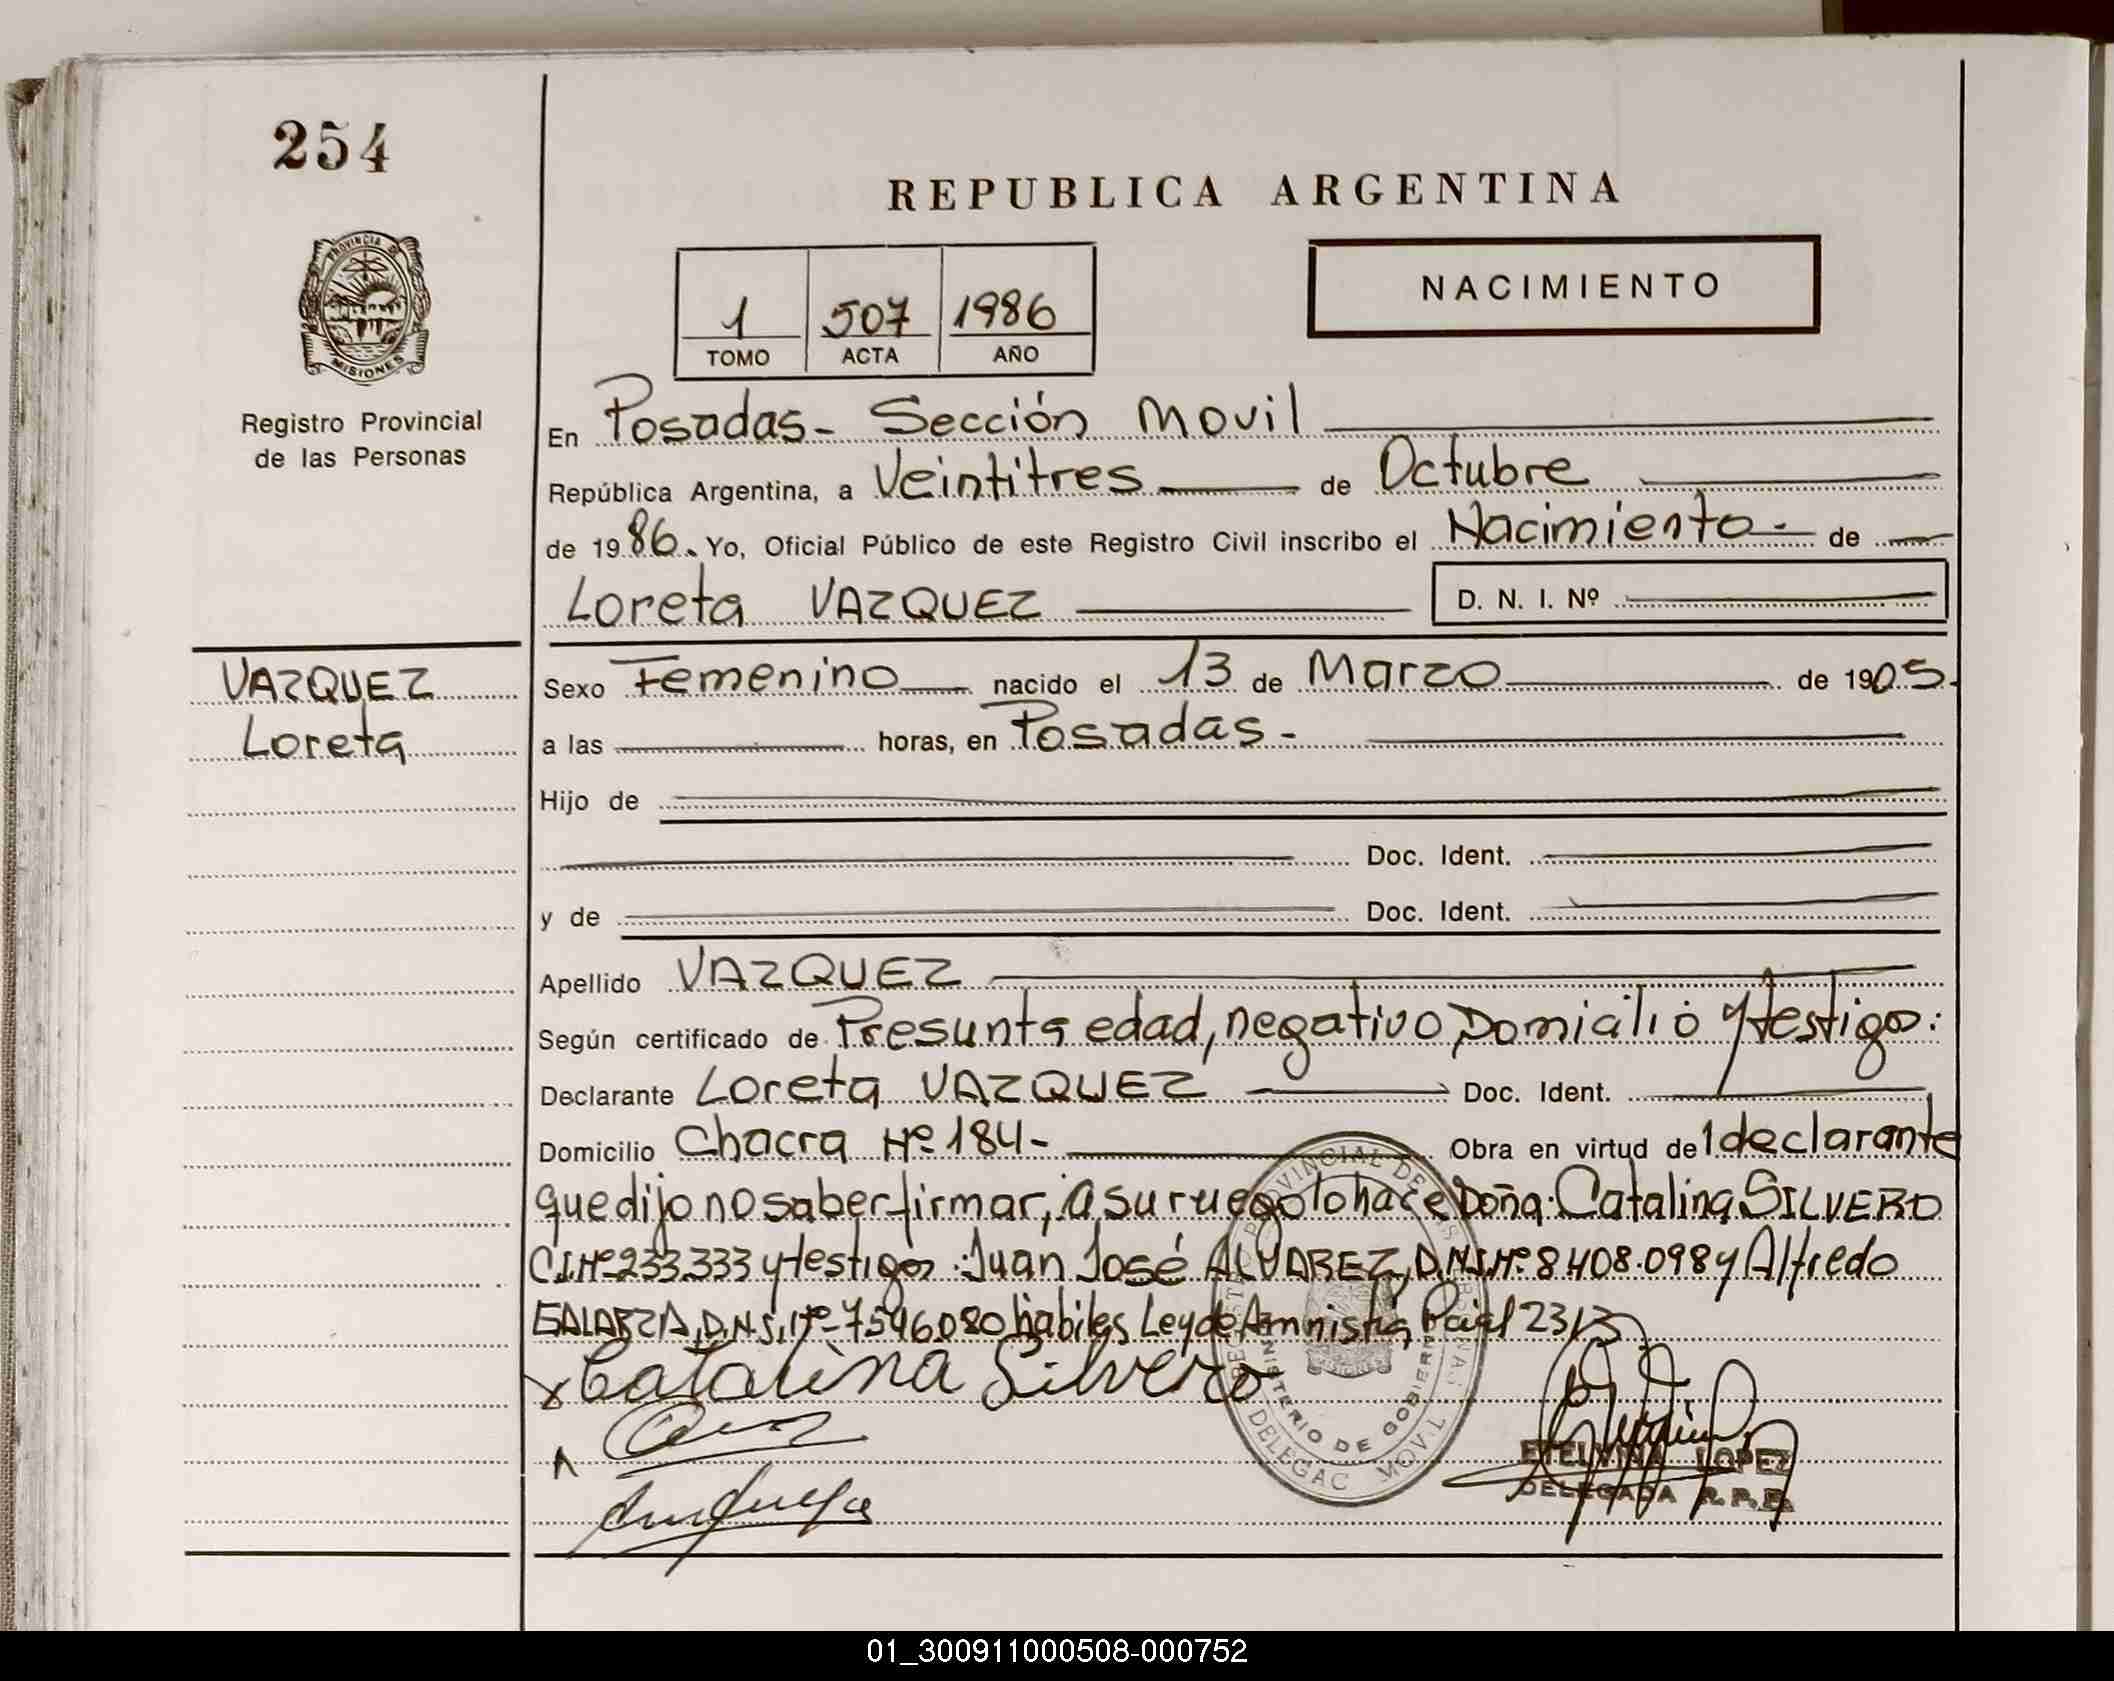 254
REPUBLICA ARGENTINA
PROVINCIA DE
MISIONES
NACIMIENTO
1 507 1986
TOMO ACTA AÑO
Registro Provincial
de las Personas
En Posadas - Sección Movil
República Argentina, a Veintitres de Octubre
de 1986. Yo, Oficial Público de este Registro Civil inscribo el Nacimiento - de
Loreta VAZQUEZ D. N. I. Nº
VAZQUEZ
Loreta
Sexo Femenino nacido el 13 de Marzo de 1905.
a las horas, en Posadas -
Hijo de
Doc. Ident.
y de Doc. Ident.
Apellido VAZQUEZ
Según certificado de Presunta edad, negativo Domicilio y testigo:
Declarante Loreta VAZQUEZ Doc. Ident.
Domicilio Chacra Nº 184 - Obra en virtud de 1 declarante
que dijo no saber firmar, a su ruego lo hace Doña: Catalina SILVERO
C.I. Nº 233.333 y testigos: Juan José ALVAREZ, D.N.I. Nº 8408.098 y Alfredo
GALARZA, D.N.I. Nº 7546080 habiles Ley de Amnistia 2313
x Catalina Silvero
MINISTERIO DE GOBIERNO
DELEGAC MOVIL
ETELVINA LOPEZ
DELEGADA R.P.P.
01_300911000508-000752